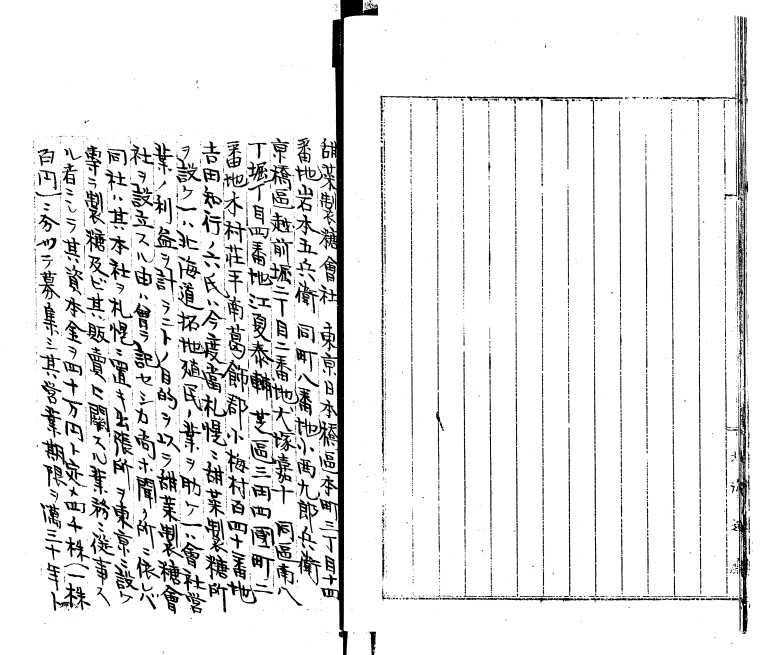 甜菜製糖會社 東京日本橋區本町三丁目十四
番地岩本五兵衛 同町八番地小西九郎兵衛
京橋區越前堀二丁目二番地犬塚嘉十 同區南八
丁堀丁目四番地江夏泰輔 芝區三田四國町二
番地木村荘平南葛飾郡小梅村百四十二番地
吉田知行ノ六氏ハ今度當札幌ニ甜菜製糖所
ヲ設ケ一ハ北海道拓地殖民ノ業ヲ助ケ一ハ會社営
業ノ利益ヲ計ラントノ目的ヲ以テ甜菜製糖會
社ヲ設立スル由ハ曾テ記セシカ尚ホ聞ク所ニ依レバ
同社ハ其本社ヲ札幌ニ置キ出張所ヲ東京ニ設ケ
専ラ製糖及ビ其販賣ニ關スル業務ニ從事ス
ル者ニシテ其資本金ヲ四十万円ト定メ四千株(一株
百円)ニ分ツテ募集シ其営業期限ヲ満三十年ト
北海道廳